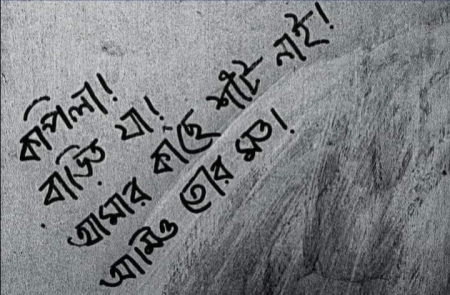 কপিলা!
বাড়িত যা!
আমার কাছে শার্ট নাই!
আমিও তোর মত।